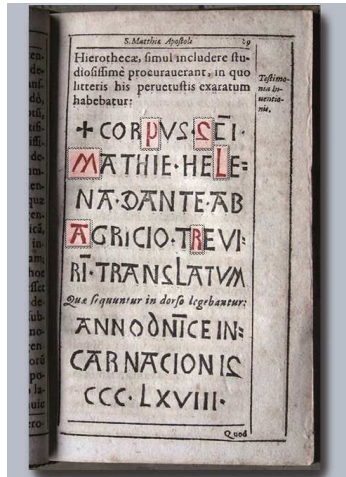 S. Matthiæ Apostoli 29
Hierothecæ, simul includere stu-
diosissimè procurauerant, in quo
litteris his peruetustis exaratum
habebatur:
Testimo-
nia in-
uentio-
nis.
+ CORPVS·SC̄I·
MATHIE·HELE=
NA·DANTE·AB
AGRICIO·TREVI=
RĪ·TRANSLATVM
Quæ sequuntur in dorso legebantur:
ANNO DN̄ICE IN=
CARNACIONIS
CCC·LXVIII·
Quod